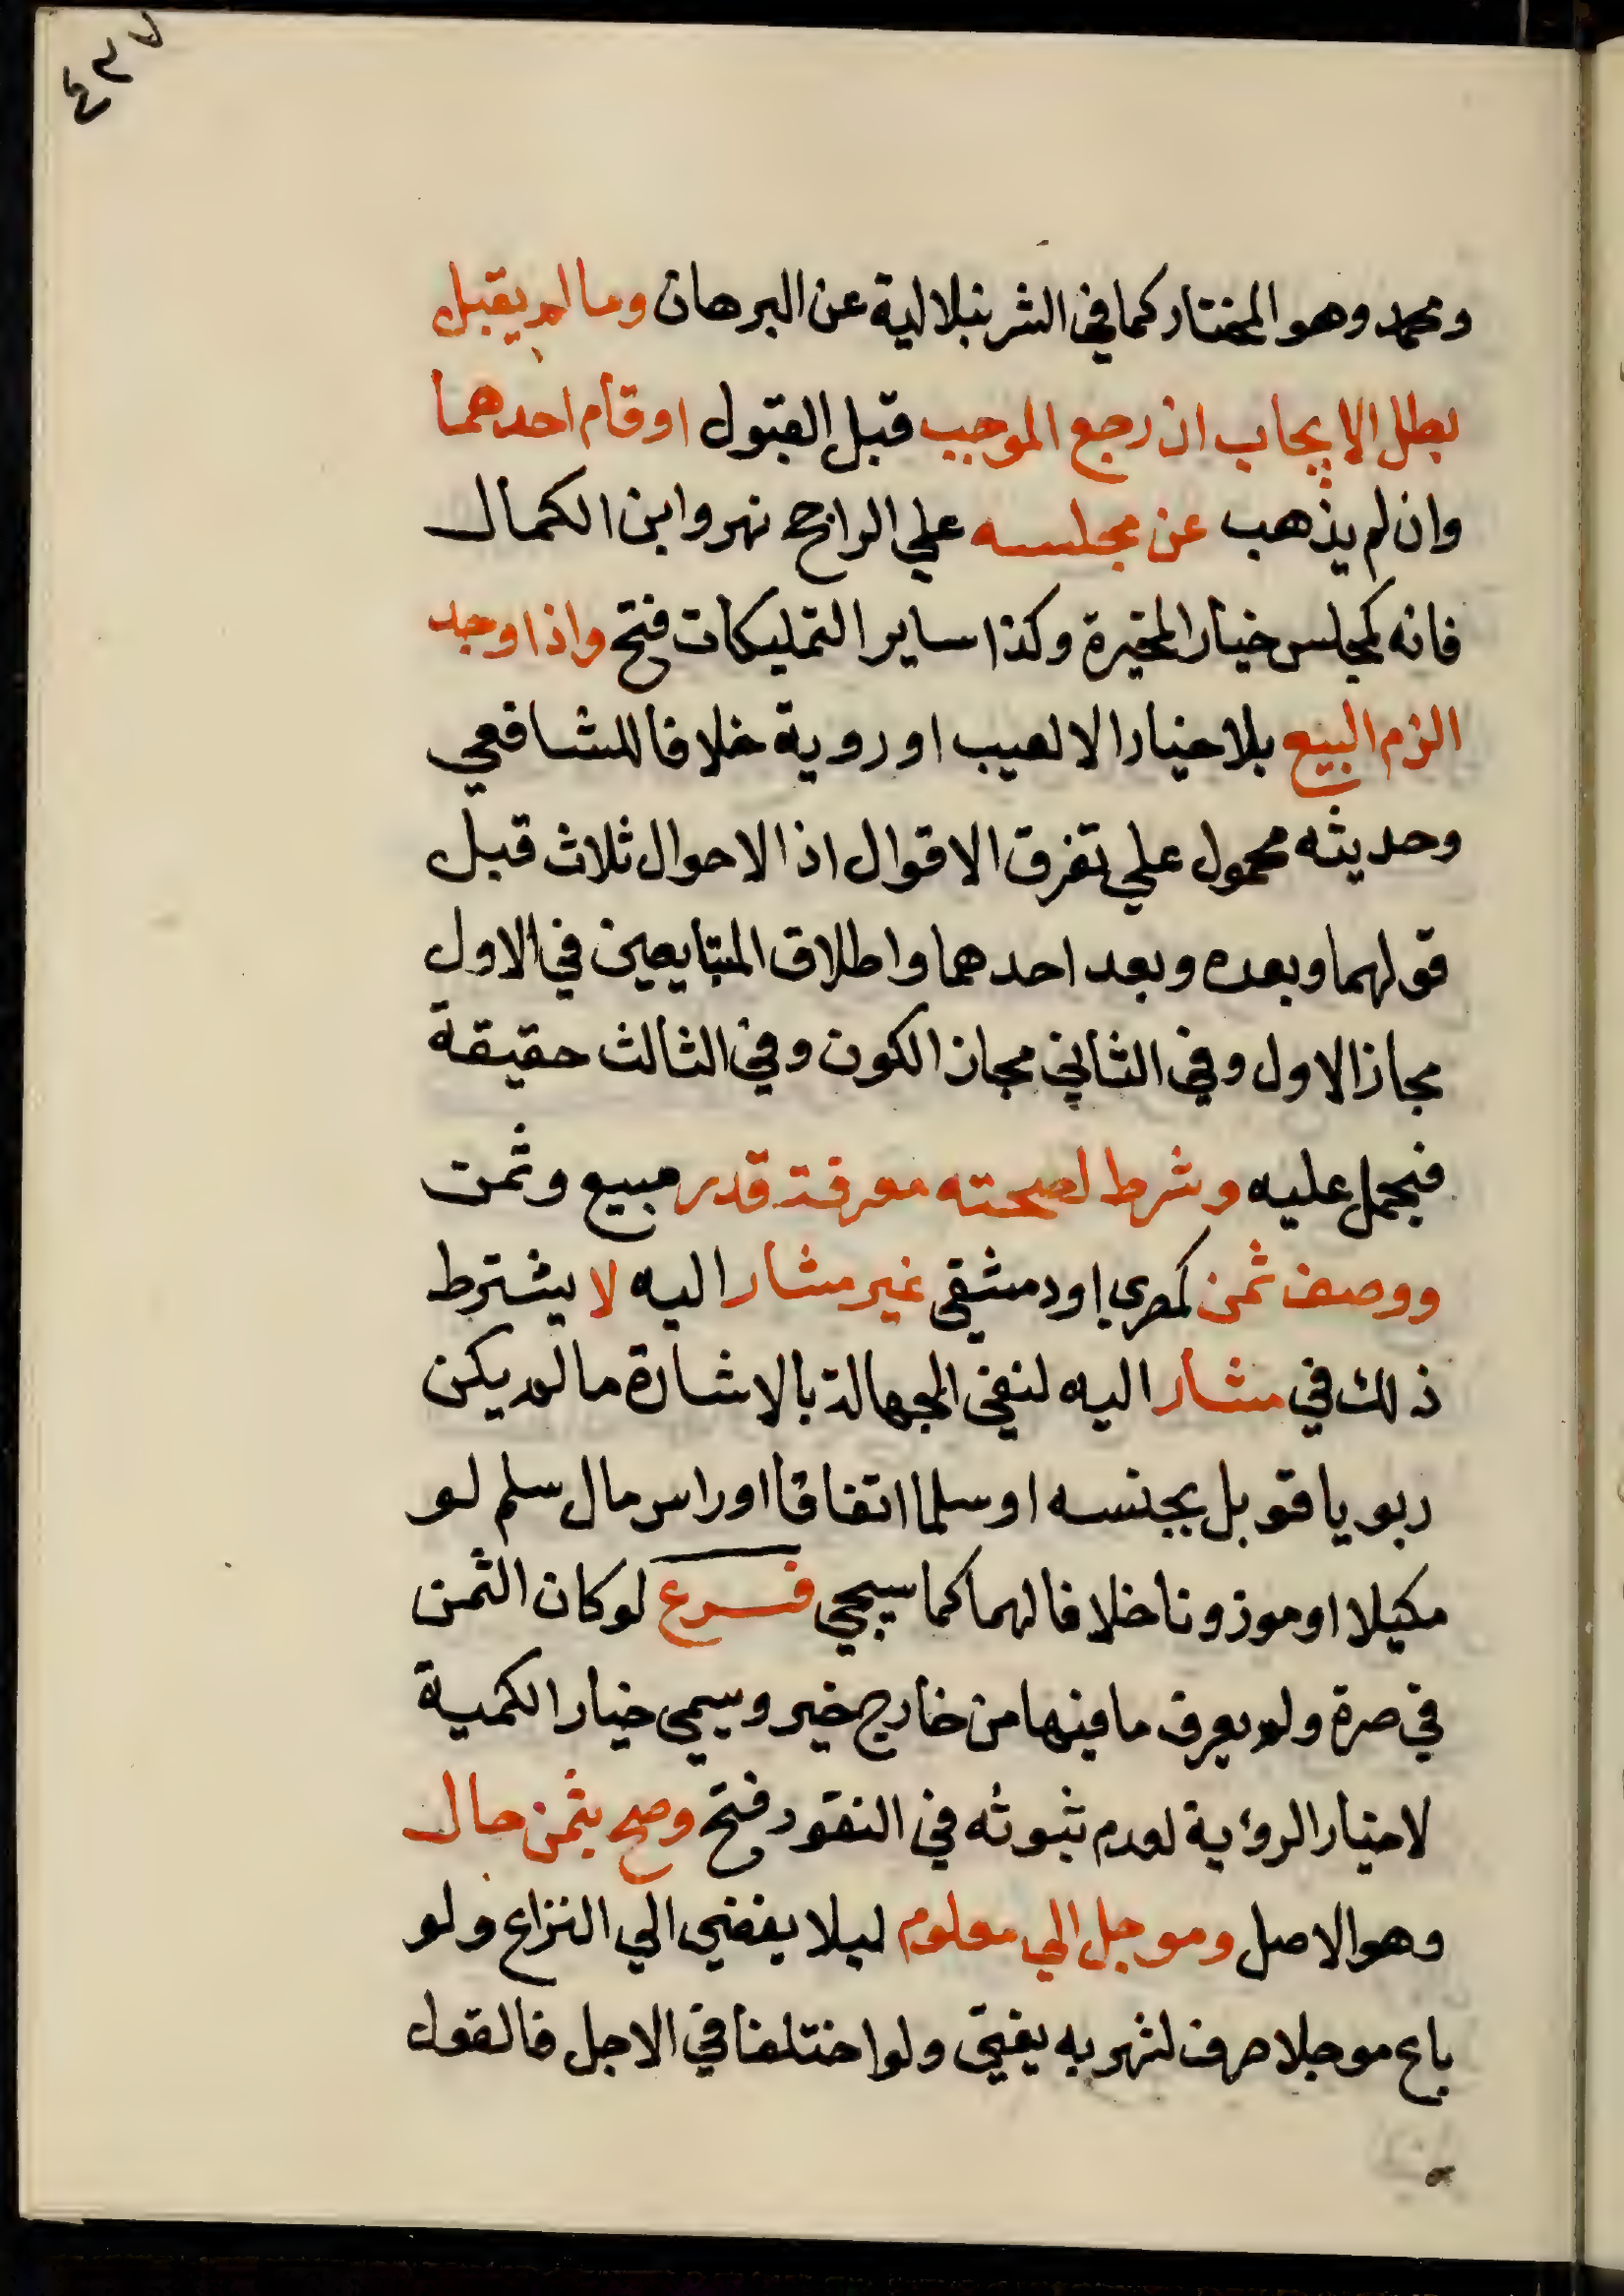 ٤٣٧
ومحمد وهو المختار كما في الشرنبلالية عن البرهان وما لم يقبل
بطل الايجاب ان رجع الموجب قبل القبول او قام احدهما
وان لم يذهب عن مجلسه علي الراجح نهر وابن الكمال
فانه كمجلس خيار المخيرة وكذا ساير التمليكات فتح واذا وجد
الزم البيع بلا خيار الا لعيب او روية خلافا للشافعي
وحديثه محمول علي تفرق الاقوال اذ الاحوال ثلاث قبل
قولهما وبعده وبعد احدهما واطلاق المتبايعين في الاول
مجاز الاول وفي الثاني مجاز الكون وفي الثالث حقيقة
فيحمل عليه وشرط لصحته معرفة قدر مبيع وثمن
ووصف ثمن كمصري او دمشقي غير مشار اليه لا يشترط
ذلك في مشار اليه لنفي الجهالة بالاشارة ما لم يكن
ربويا قوبل بجنسه او سلما اتفاقا او راس مال سلم لو
مكيلا او موزونا خلافا لهما كما سيجي فرع لو كان الثمن
في صرة ولم يعرف ما فيها من خارج خير وسيمي خيار الكمية
لا خيار الرؤية لعدم ثبوته في النقود فتح وصح بثمن حال
وهو الاصل وموجل الي معلوم ليلا يفضي الي النزاع ولو
باع موجلا صرف لشهر به يفتي ولو اختلفا في الاجل فالقول